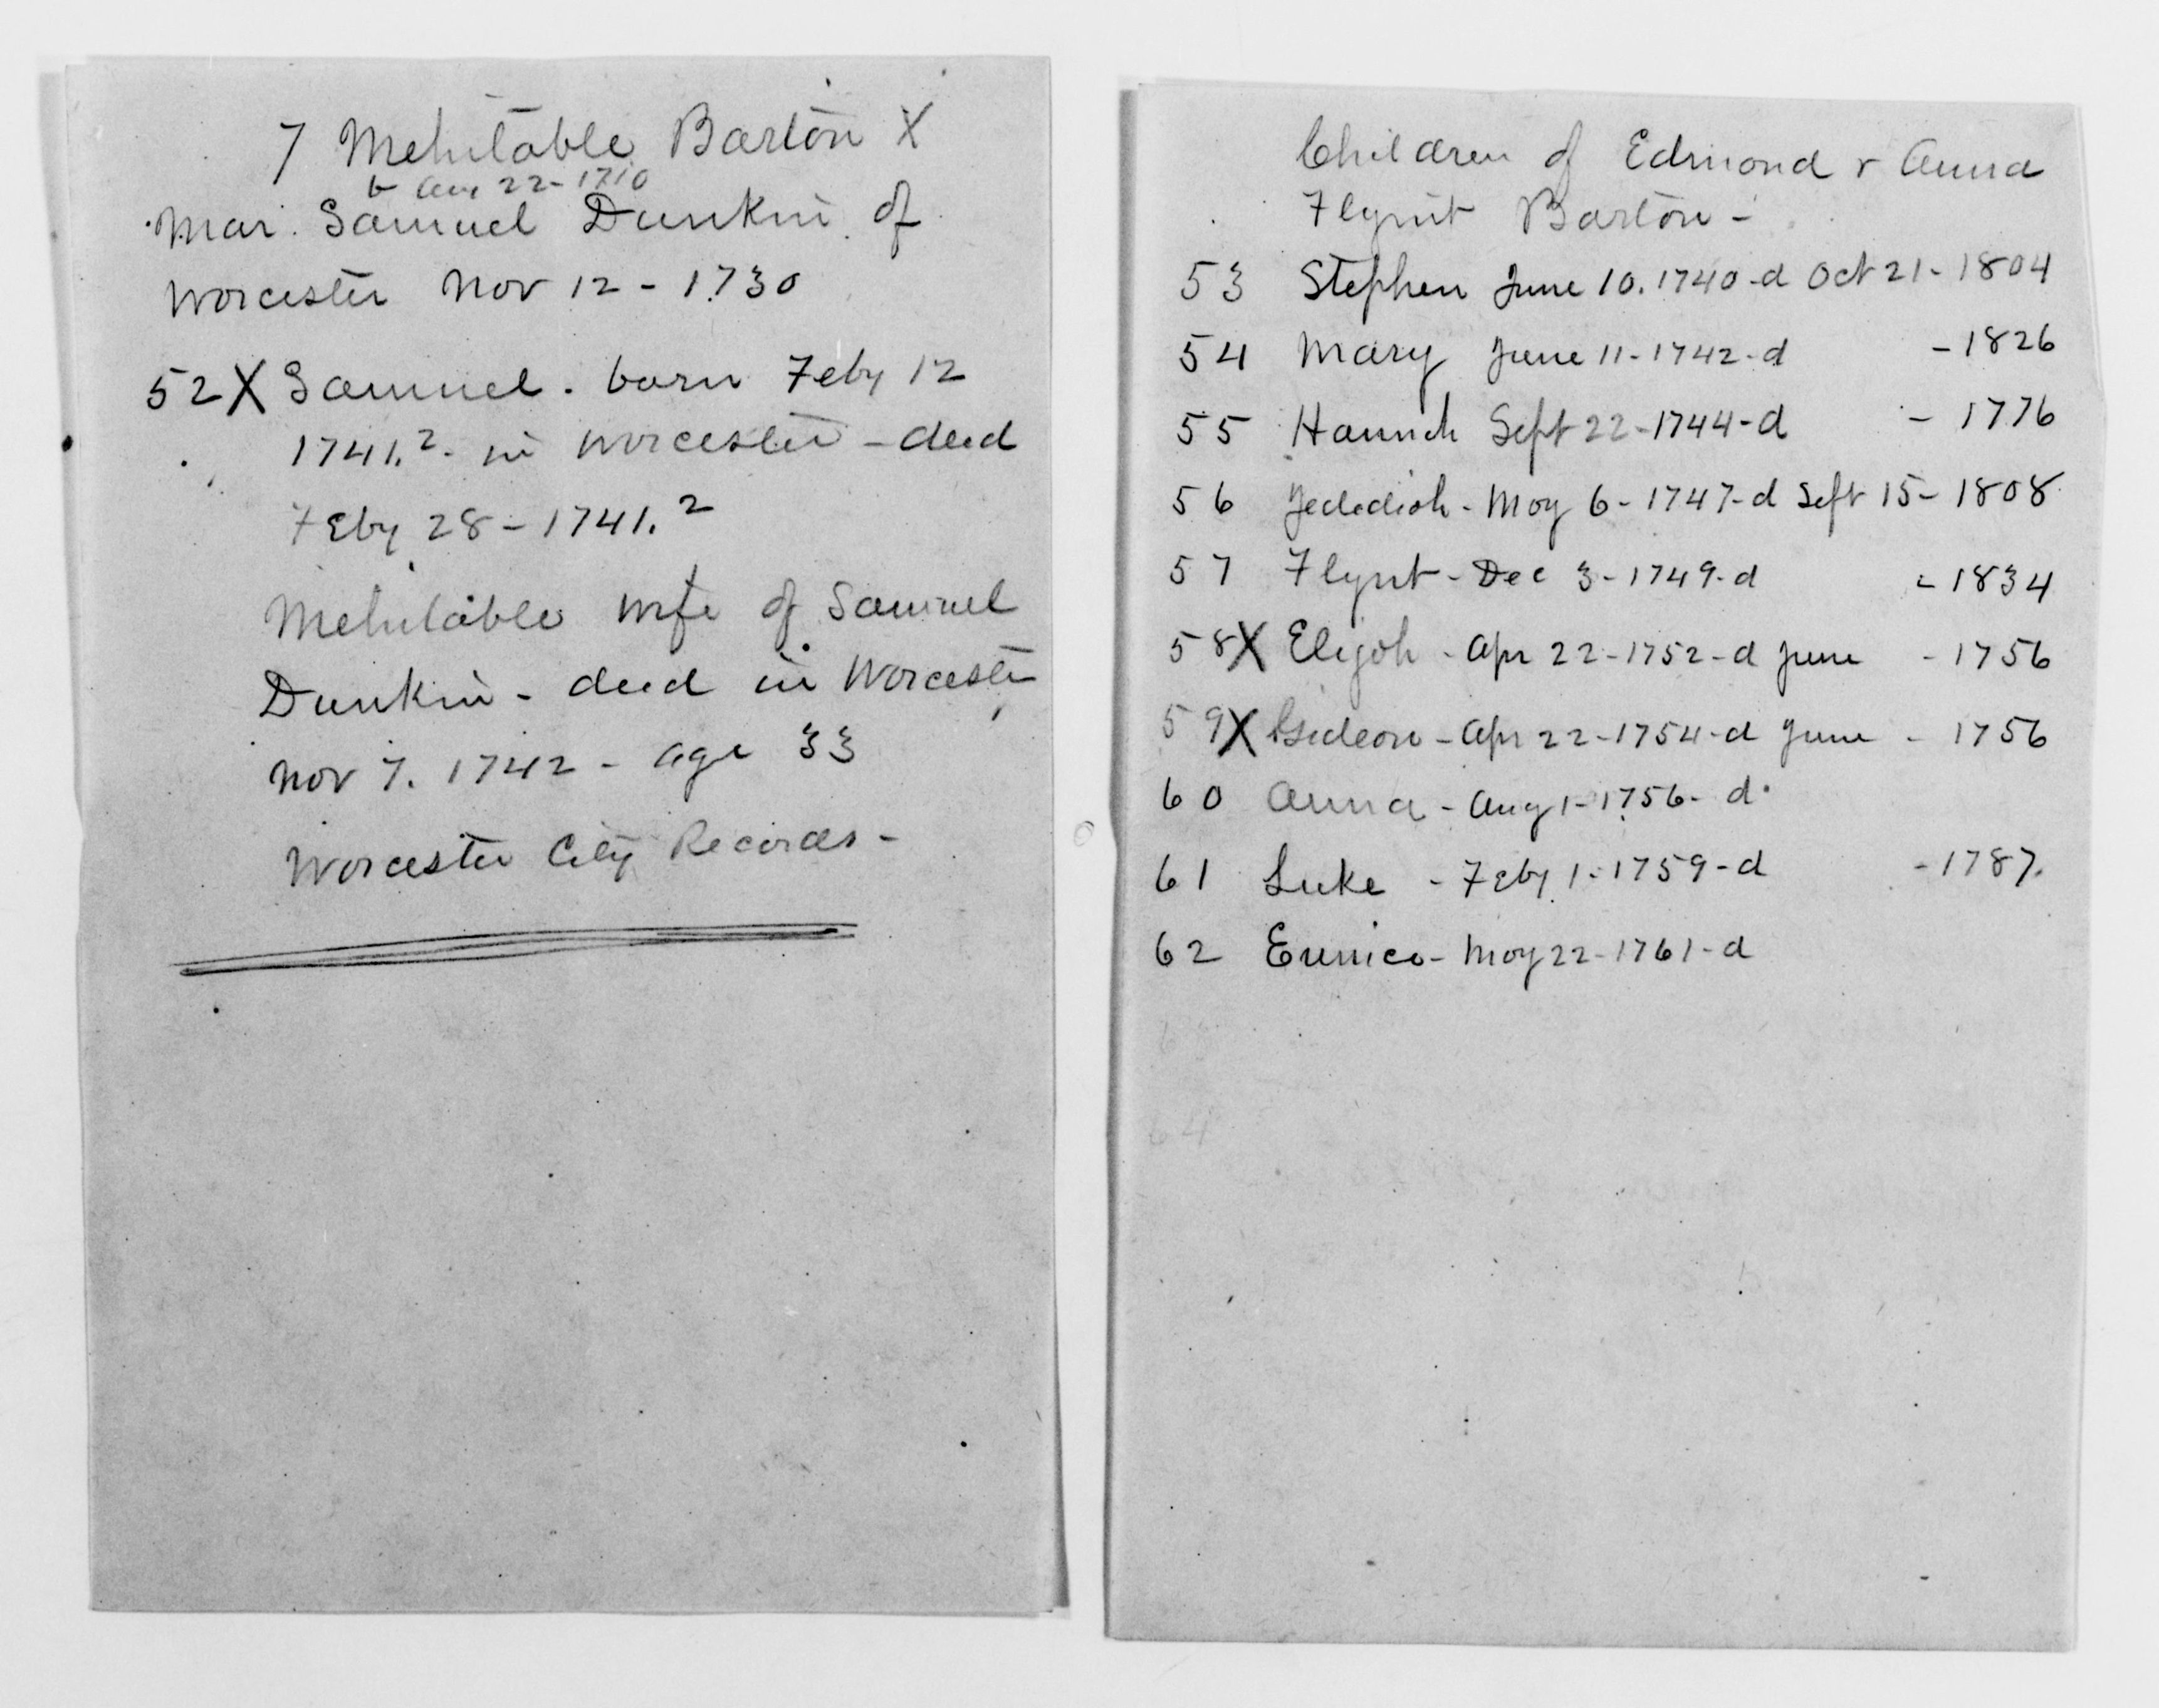 7 Mehitable Barton X
b Aug 22-1710
Mar. Samuel Dunkin of
Worcester Nov 12 - 1730
52X Samuel. born Feby 12
1741.2. in Worcester - died
Feby 28 - 1741.2
Mehitable wife of Samuel
Dunkin - died in Worcester
Nov 7. 1742 - age 33
Worcester City Records -
Children of Edmond & Anna
Flynt Barton -
53 Stephen June 10. 1740-d Oct 21-1804
54 Mary June 11-1742-d - 1826
55 Hannah Sept 22-1744-d - 1776
56 Jedediah - May 6-1747-d Sept 15-1808
57 Flynt - Dec 3-1749-d - 1834
58X Elijah - Apr 22-1752-d June - 1756
59X Gideon - Apr 22-1754-d June - 1756
60 Anna - Aug 1-1756-d.
61 Luke - Feby 1-1759-d - 1787.
62 Eunice - May 22-1761-d
64